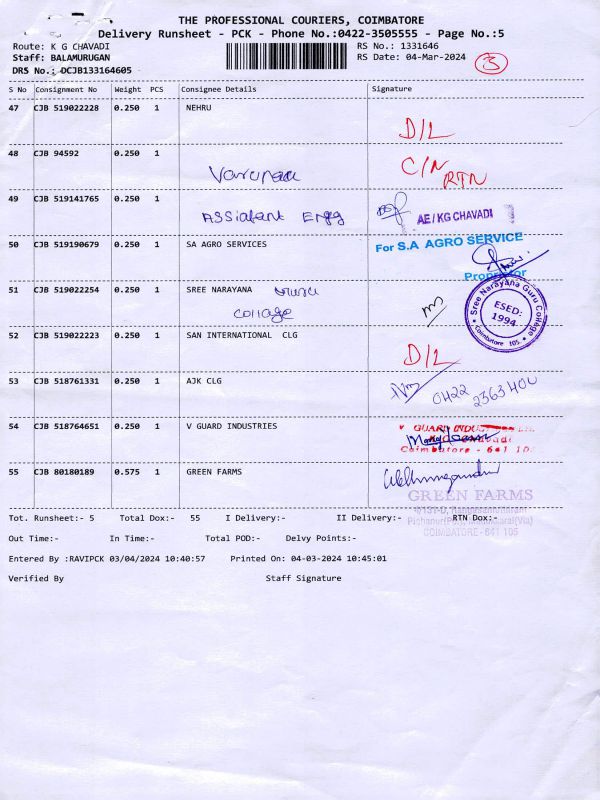 THE PROFESSIONAL COURIERS, COIMBATORE
Delivery Runsheet - PCK - Phone No.:0422-3505555 - Page No.:5
Route: K G CHAVADI
RS No.: 1331646
Staff: BALAMURUGAN
RS Date: 04-Mar-2024
3
DRS No.: DCJB133164605
S No Consignment No Weight PCS Consignee Details Signature
47 CJB 519022228 0.250 1 NEHRU
D/L
48 CJB 94592 0.250 1
C/N
RTN
49 CJB 519141765 0.250 1
Assistant Engg
AE/KG CHAVADI
50 CJB 519190679 0.250 1 SA AGRO SERVICES
For S.A AGRO SERVICE
Proprietor
51 CJB 519022254 0.250 1 SREE NARAYANA
collage
Sree Narayana Guru College
ESED:
1994
Coimbatore 105.
52 CJB 519022223 0.250 1 SAN INTERNATIONAL CLG
D/L
53 CJB 518761331 0.250 1 AJK CLG
0422
2363400
54 CJB 518764651 0.250 1 V GUARD INDUSTRIES
V GUARD INDUST
Coimbatore - 641 10
55 CJB 80180189 0.575 1 GREEN FARMS
GREEN FARMS
COIMBATORE - 641 105
Tot. Runsheet:- 5 Total Dox:- 55 I Delivery:- II Delivery:- RTN Dox:-
Out Time:- In Time:- Total POD:- Delvy Points:-
Entered By :RAVIPCK 03/04/2024 10:40:57 Printed On: 04-03-2024 10:45:01
Verified By Staff Signature